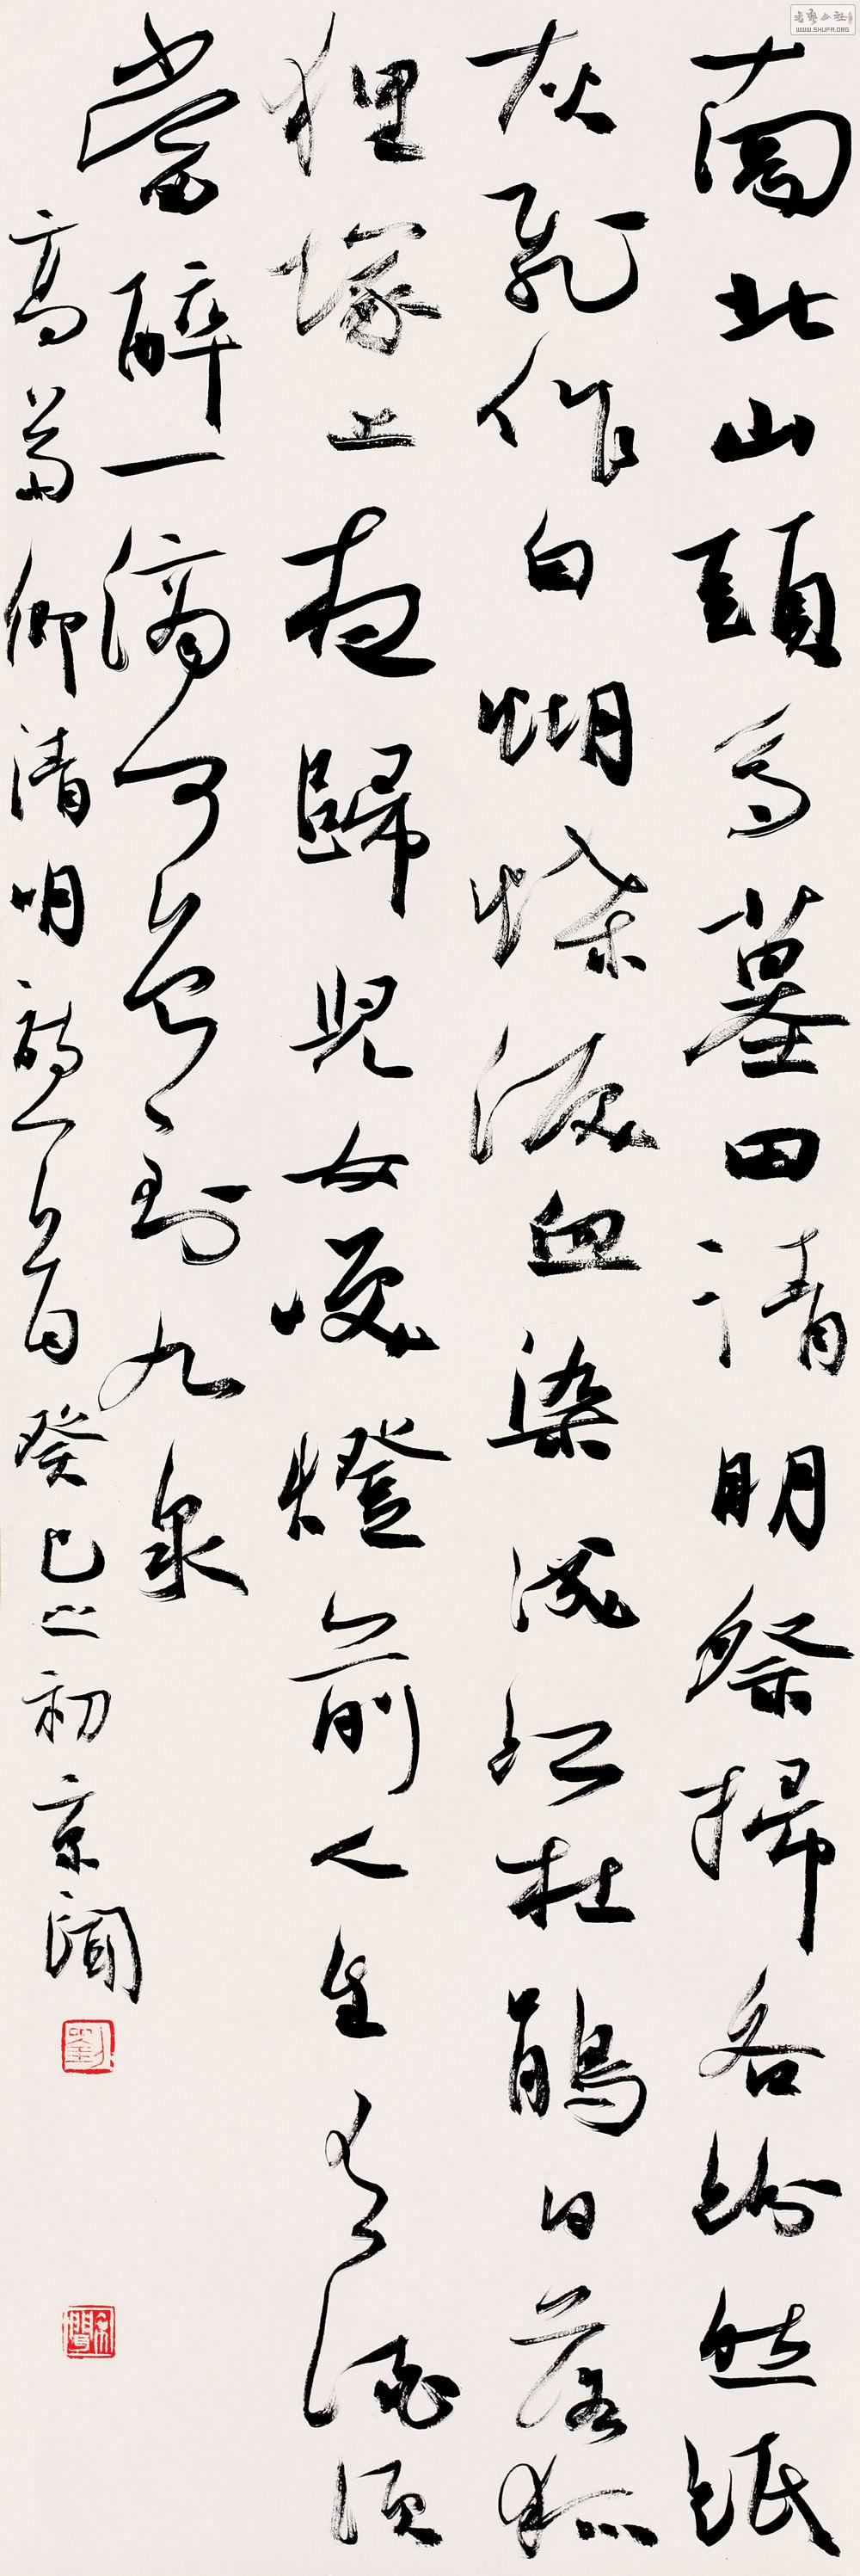 南北山頭多墓田清明祭掃各紛然紙
灰飛作白蝴蝶淚血染成紅杜鵑日落狐
狸塚上夜歸兒女笑燈前人生有酒須
當醉一滴何曾到九泉
高翥 清明 癸巳之初京聞
WWW.SHUFA.ORG